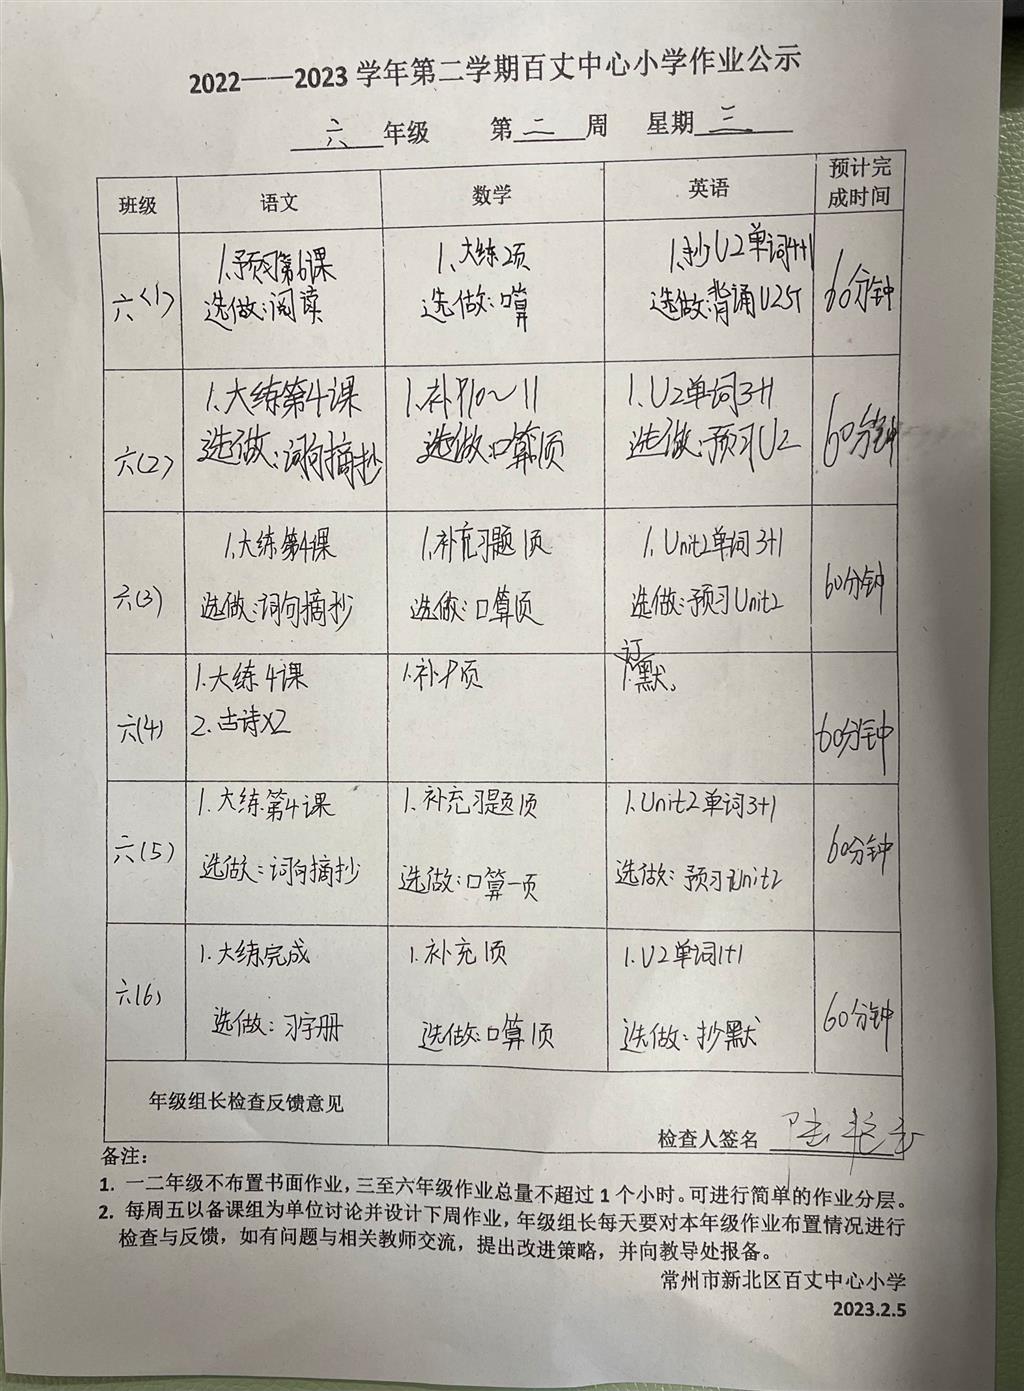 2022——2023 学年第二学期百丈中心小学作业公示
六 年级 第 二 周 星期 三
班级 语文 数学 英语 预计完成时间
六(1)
1.预习第6课
选做:阅读
1、大练2项
选做:口算
1.抄U2单词4+1
选做:背诵U2ST
60分钟
六(2)
1.大练第4课
选做:词句摘抄
1.补P10～11
选做:口算1页
1.U2单词3+1
选做:预习U2
60分钟
六(3)
1.大练第4课
选做:词句摘抄
1.补充习题1页
选做:口算1页
1. Unit2单词3+1
选做:预习Unit2
60分钟
六(4)
1.大练4课
2.古诗X2
1.补1页
订
1.默。
60分钟
六(5)
1.大练第4课
选做:词句摘抄
1.补充习题1页
选做:口算一页
1.Unit2单词3+1
选做:预习Unit2
60分钟
六(6)
1.大练完成
选做:习字册
1.补充1页
选做:口算1页
1.U2单词1+1
选做:抄默
60分钟
年级组长检查反馈意见
检查人签名
备注：
1. 一二年级不布置书面作业，三至六年级作业总量不超过 1 个小时。可进行简单的作业分层。
2. 每周五以备课组为单位讨论并设计下周作业，年级组长每天要对本年级作业布置情况进行
检查与反馈，如有问题与相关教师交流，提出改进策略，并向教导处报备。
常州市新北区百丈中心小学
2023.2.5